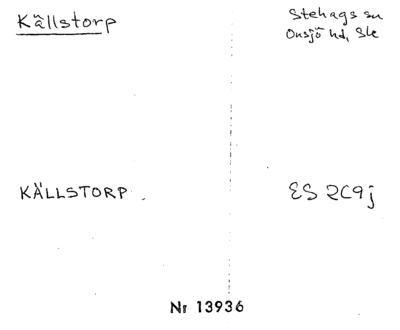 Källstorp
Stehags sn
Onsjö hd, Sk
KÄLLSTORP
ES 2C9j
Nr 13936